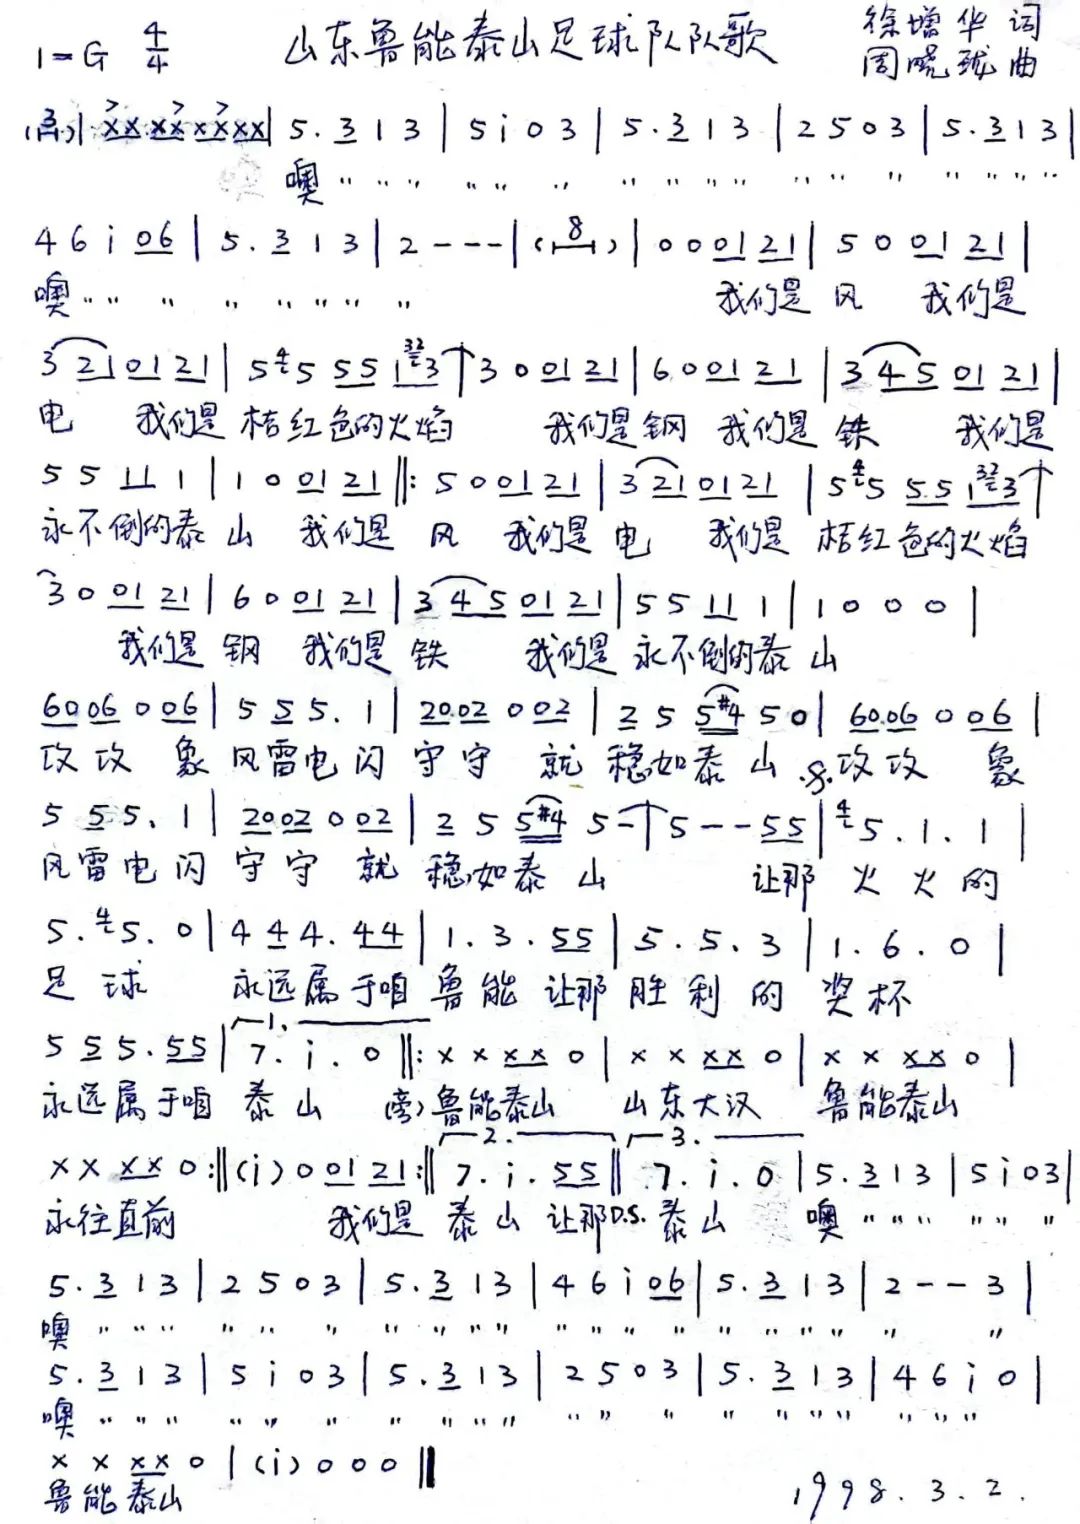 1=G 4/4 山东鲁能泰山足球队队歌 徐增华 词
周晓珑 曲
(3)| xx xx xx xx | 5. 3 1 3 | 5 i 0 3 | 5. 3 1 3 | 2 5 0 3 | 5. 3 1 3 |
噢 " " " " " " " " " " " " " " " "
4 6 i 06 | 5. 3 1 3 | 2 - - - | (8) | 0 0 01 21 | 5 0 01 21 |
噢 " " " " " " " " 我们是 风 我们是
3 21 01 21 | 5 4 5 55 1 32 3 | 3 0 01 21 | 6 0 01 21 | 3 45 01 21 |
电 我们是 桔红色的火焰 我们是 钢 我们是 铁 我们是
5 5 11 1 | 1 0 01 21 ‖: 5 0 01 21 | 3 21 01 21 | 5 4 5 5.5 1 32 3 |
永不倒的泰 山 我们是 风 我们是 电 我们是 桔红色的火焰
3 0 01 21 | 6 0 01 21 | 3 45 01 21 | 5 5 11 1 | 1 0 0 0 |
我们是 钢 我们是 铁 我们是 永不倒的泰 山
60 06 0 06 | 5 5 5. 1 | 20.02 0 02 | 2 5 5#4 5 0 | 60.06 0 06 |
攻 攻 象 风雷电闪 守 守 就 稳如泰 山 .S. 攻 攻 象
5 5 5. 1 | 20 02 0 02 | 2 5 5#4 5 - | 5 - - 55 | 4 5. 1. 1 |
风雷电闪 守 守 就 稳如泰 山 让那 火 火 的
5. 4 5. 0 | 4 4 4. 44 | 1. 3. 55 | 5. 5. 3 | 1. 6. 0 |
足 球 永远属于咱 鲁 能 让那 胜 利 的 奖 杯
5 5 5. 55 | 1. 7. i. 0 ‖: x x xx 0 | x x xx 0 | x x xx 0 |
永远属于咱 泰 山 (旁) 鲁能泰山 山东大汉 鲁能泰山
x x xx 0 :‖ (i) 0 01 21 :‖ 2. 7. i. 55 ‖ 3. 7. i. 0 | 5. 3 1 3 | 5 i 0 3 |
永往直前 我们是 泰 山 让那 D.S. 泰 山 噢 " " " " " "
5. 3 1 3 | 2 5 0 3 | 5. 3 1 3 | 4 6 i 06 | 5. 3 1 3 | 2 - - 3 |
噢 " " " " " " " " " " " " " " " " " " " "
5. 3 1 3 | 5 i 0 3 | 5. 3 1 3 | 2 5 0 3 | 5. 3 1 3 | 4 6 i 0 |
噢 " " " " " " " " " " " " " " " " " " " "
x x xx 0 | (i) 0 0 0 ‖
鲁能泰山
1998.3.2.